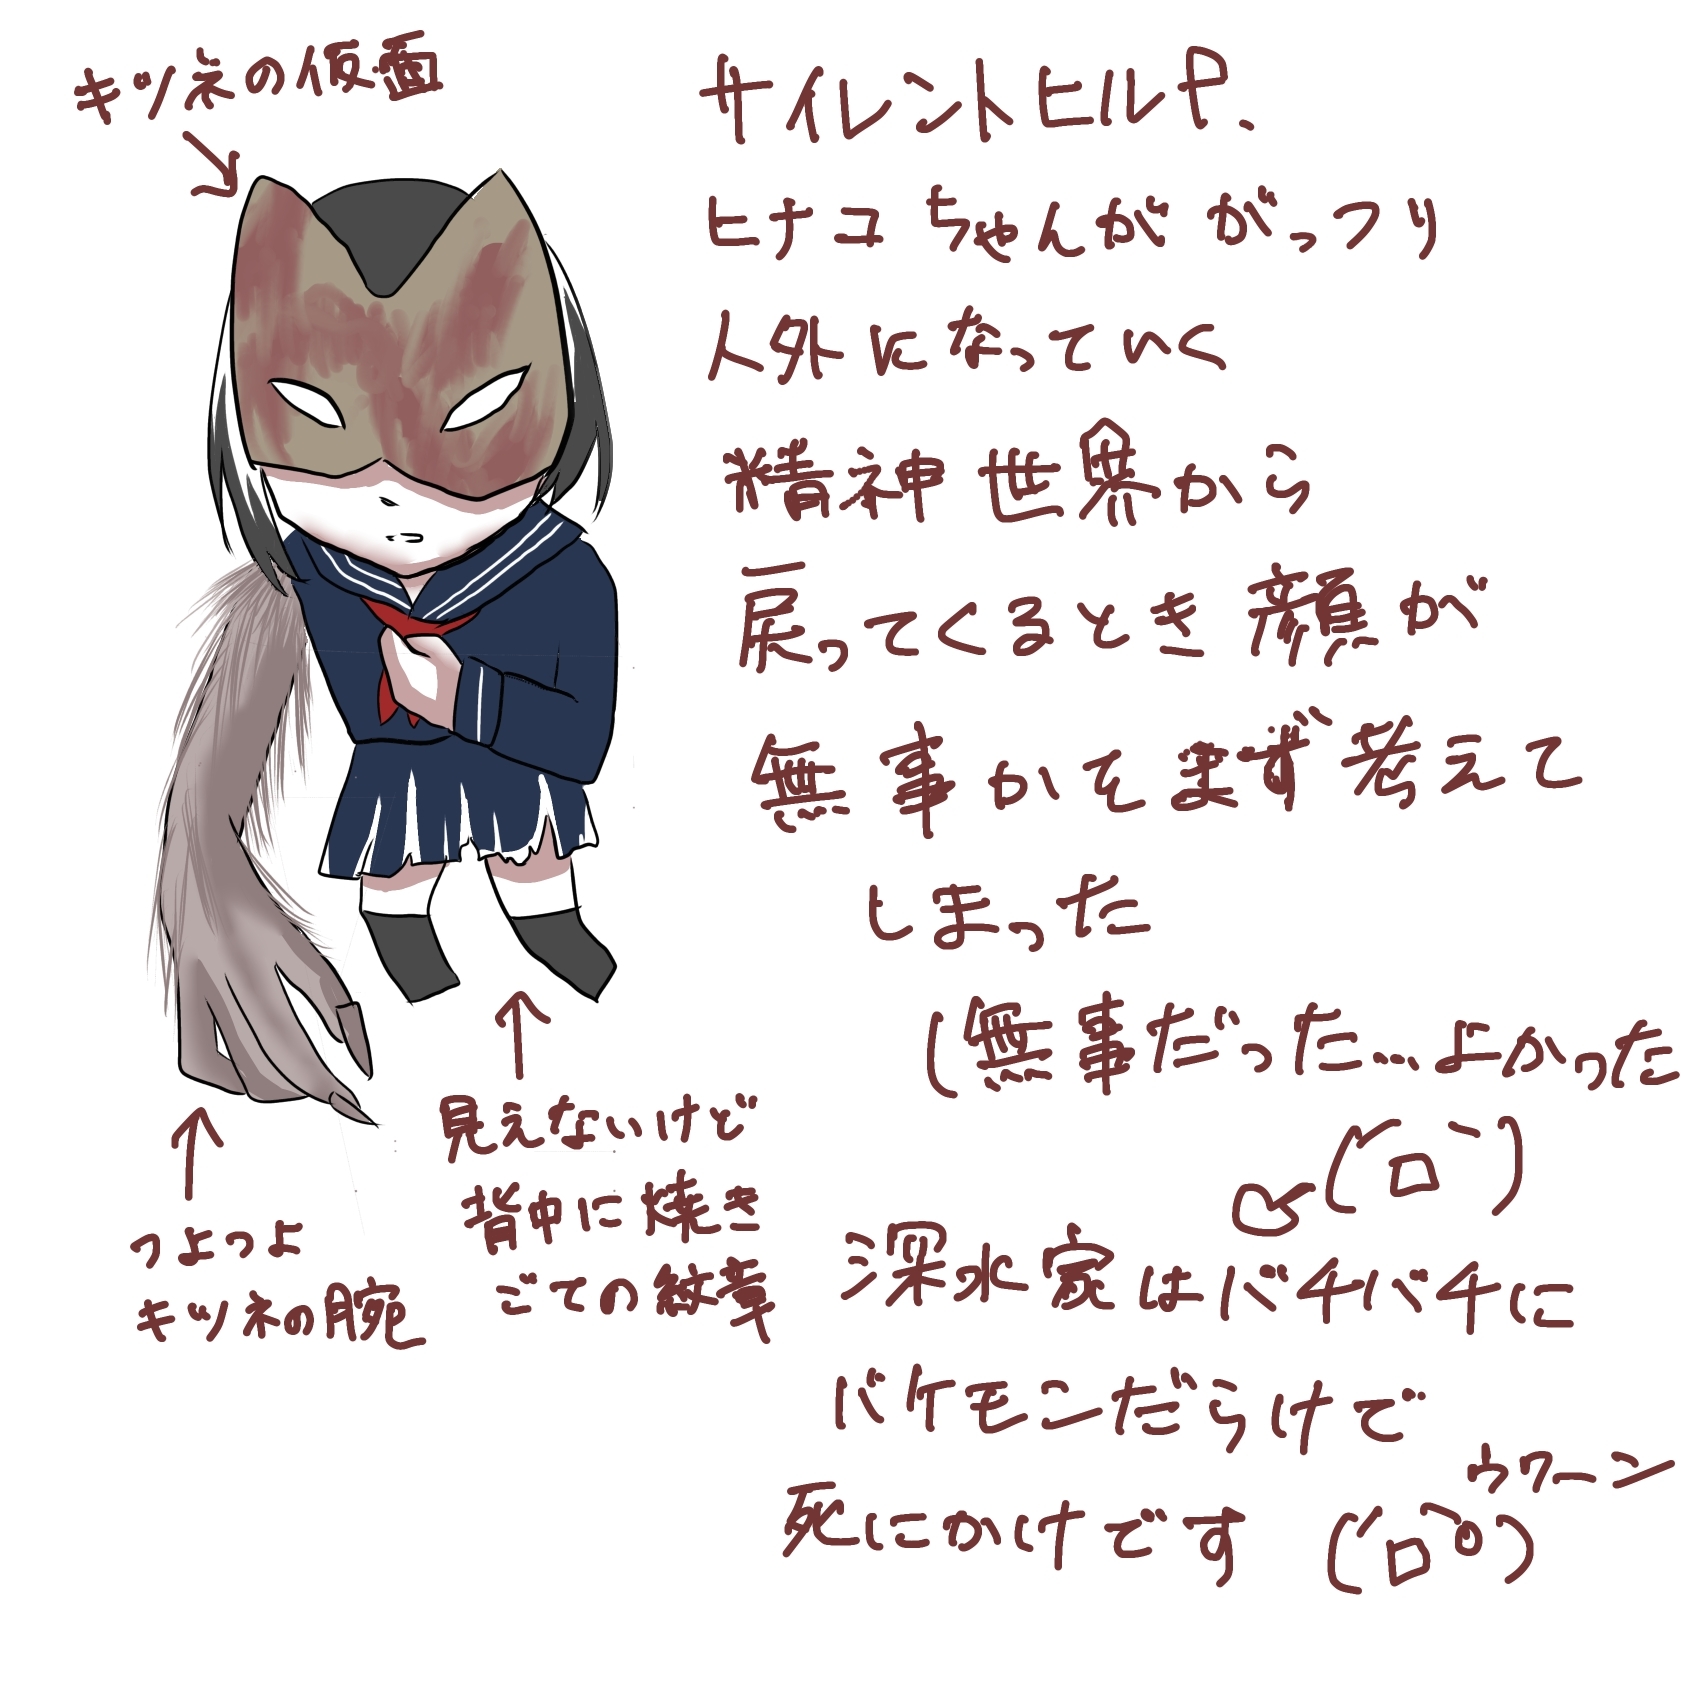 キツネの仮面
サイレントヒルf、
ヒナコちゃんががっつり
人外になっていく
精神世界から
戻ってくるとき顔が
無事かをまず考えて
しまった
(無事だった…よかった
(´ロ`)
見えないけど
背中に焼き
ごての紋章
つよつよ
キツネの腕
深水家はバチバチに
バケモンだらけで
死にかけです
ウワーン